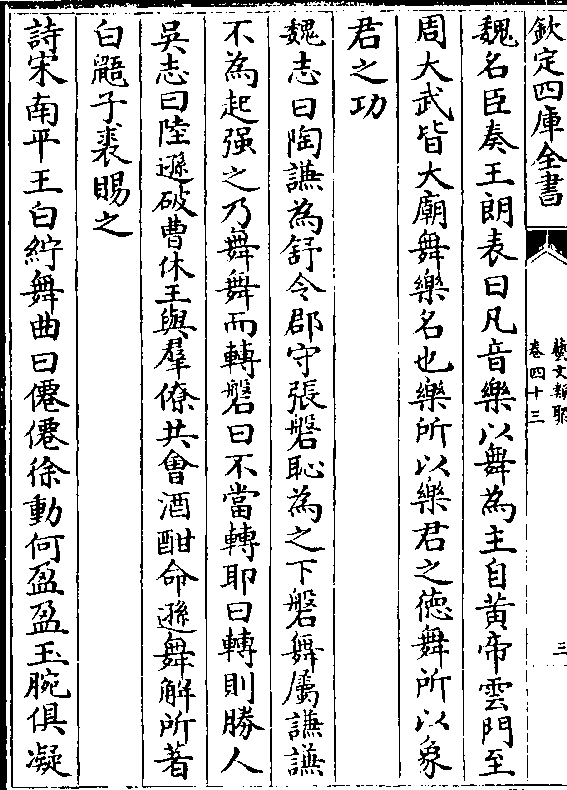 欽定四庫全書
藝文類聚
卷四十三
三
魏名臣奏王朗表曰凡音樂以舞為主自黃帝雲門至
周大武皆大廟舞樂名也樂所以樂君之德舞所以象
君之功
魏志曰陶謙為舒令郡守張磐恥為之下磐舞屬謙謙
不為起强之乃舞舞而轉磐曰不當轉耶曰轉則勝人
吳志曰陸遜破曹休王與羣僚共會酒酣命遜舞解所著
白鼯子裘賜之
詩宋南平王白紵舞曲曰僊僊徐動何盈盈玉腕俱凝